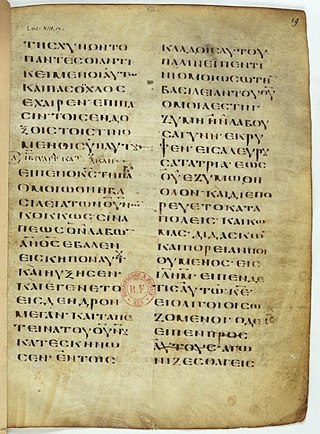 Luc. XIII, 17.
19
ΤΗϹΧΥΝΟΝΤΟ
ΠΑΝΤΕϹΟΙΑΝΤΙ
ΚΕΙΜΕΝΟΙΑΥΤω
ΚΑΙΠΑϹΟΧΛΟϹ
ΕΧΑΙΡΕΝΕΠΙΠΑ
ϹΙΝΤΟΙϹΕΝΔΟ
ΞΟΙϹΤΟΙϹΓΙΝΟ
ΜΕΝΟΙϹΥΠΑΥΤΟΥ
ΕΙΠΕΝΟΚϹΤΙΝΙ
ΟΜΟΙωϹωΗΒΑ
ϹΙΛΕΙΑΤΩΝΟΥΝΩΝ
ΚΟΚΚωϹΙΝΑ
ΠΕωϹΟΝΛΑΒω
ΑΝΟϹΕΒΑΛΕΝ
ΕΙϹΚΗΠΟΝΑΥΤΟΥ
ΚΑΙΗΥΞΗϹΕΝ
ΚΑΙΕΓΕΝΕΤΟ
ΕΙϹΔΕΝΔΡΟΝ
ΜΕΓΑΝ·ΚΑΙΤΑΠΕ
ΤΕΙΝΑΤΟΥΟΥΝΟΥ
ΚΑΤΕϹΚΗΝω
ϹΕΝ·ΕΝΤΟΙϹ
ΚΛΑΔΟΙϹΑΥΤΟΥ
ΠΑΛΙΝΕΙΠΕΝΤΙ
ΝΙΟΜΟΙωϹωΤΗ
ΒΑϹΙΛΕΙΑΝΤΟΥΘΥ
ΟΜΟΙΑΕϹΤΙΝ
ΖΥΜΗΗΝΛΑΒΟΥ
ϹΑΓΥΝΗ·ΕΚΡΥ
ΨΕΝΕΙϹΑΛΕΥΡΟΥ
ϹΑΤΑΤΡΙΑ·ΕωϹ
ΟΥΕΖΥΜωΘΗ
ΟΛΟΝ·ΚΑΙΔΙΕΠΟ
ΡΕΥΕΤΟΚΑΤΑ
ΠΟΛΕΙϹ·ΚΑΙΚω
ΜΑϹ·ΔΙΔΑϹΚω
ΚΑΙΠΟΡΕΙΑΝΠΟΙ
ΟΥΜΕΝΟϹ·ΕΙϹ
ΙΛΗΜ·ΕΙΠΕΝΔΕ
ΤΙϹΑΥΤω·ΚΕ·
ΕΙΟΛΙΓΟΙΟΙϹω
ΖΟΜΕΝΟΙ·ΟΔΕ
ΕΙΠΕΝΠΡΟϹ
ΑΥΤΟΥϹ·ΑΓω
ΝΙΖΕϹΘΑΙΕΙϹ
R.F.